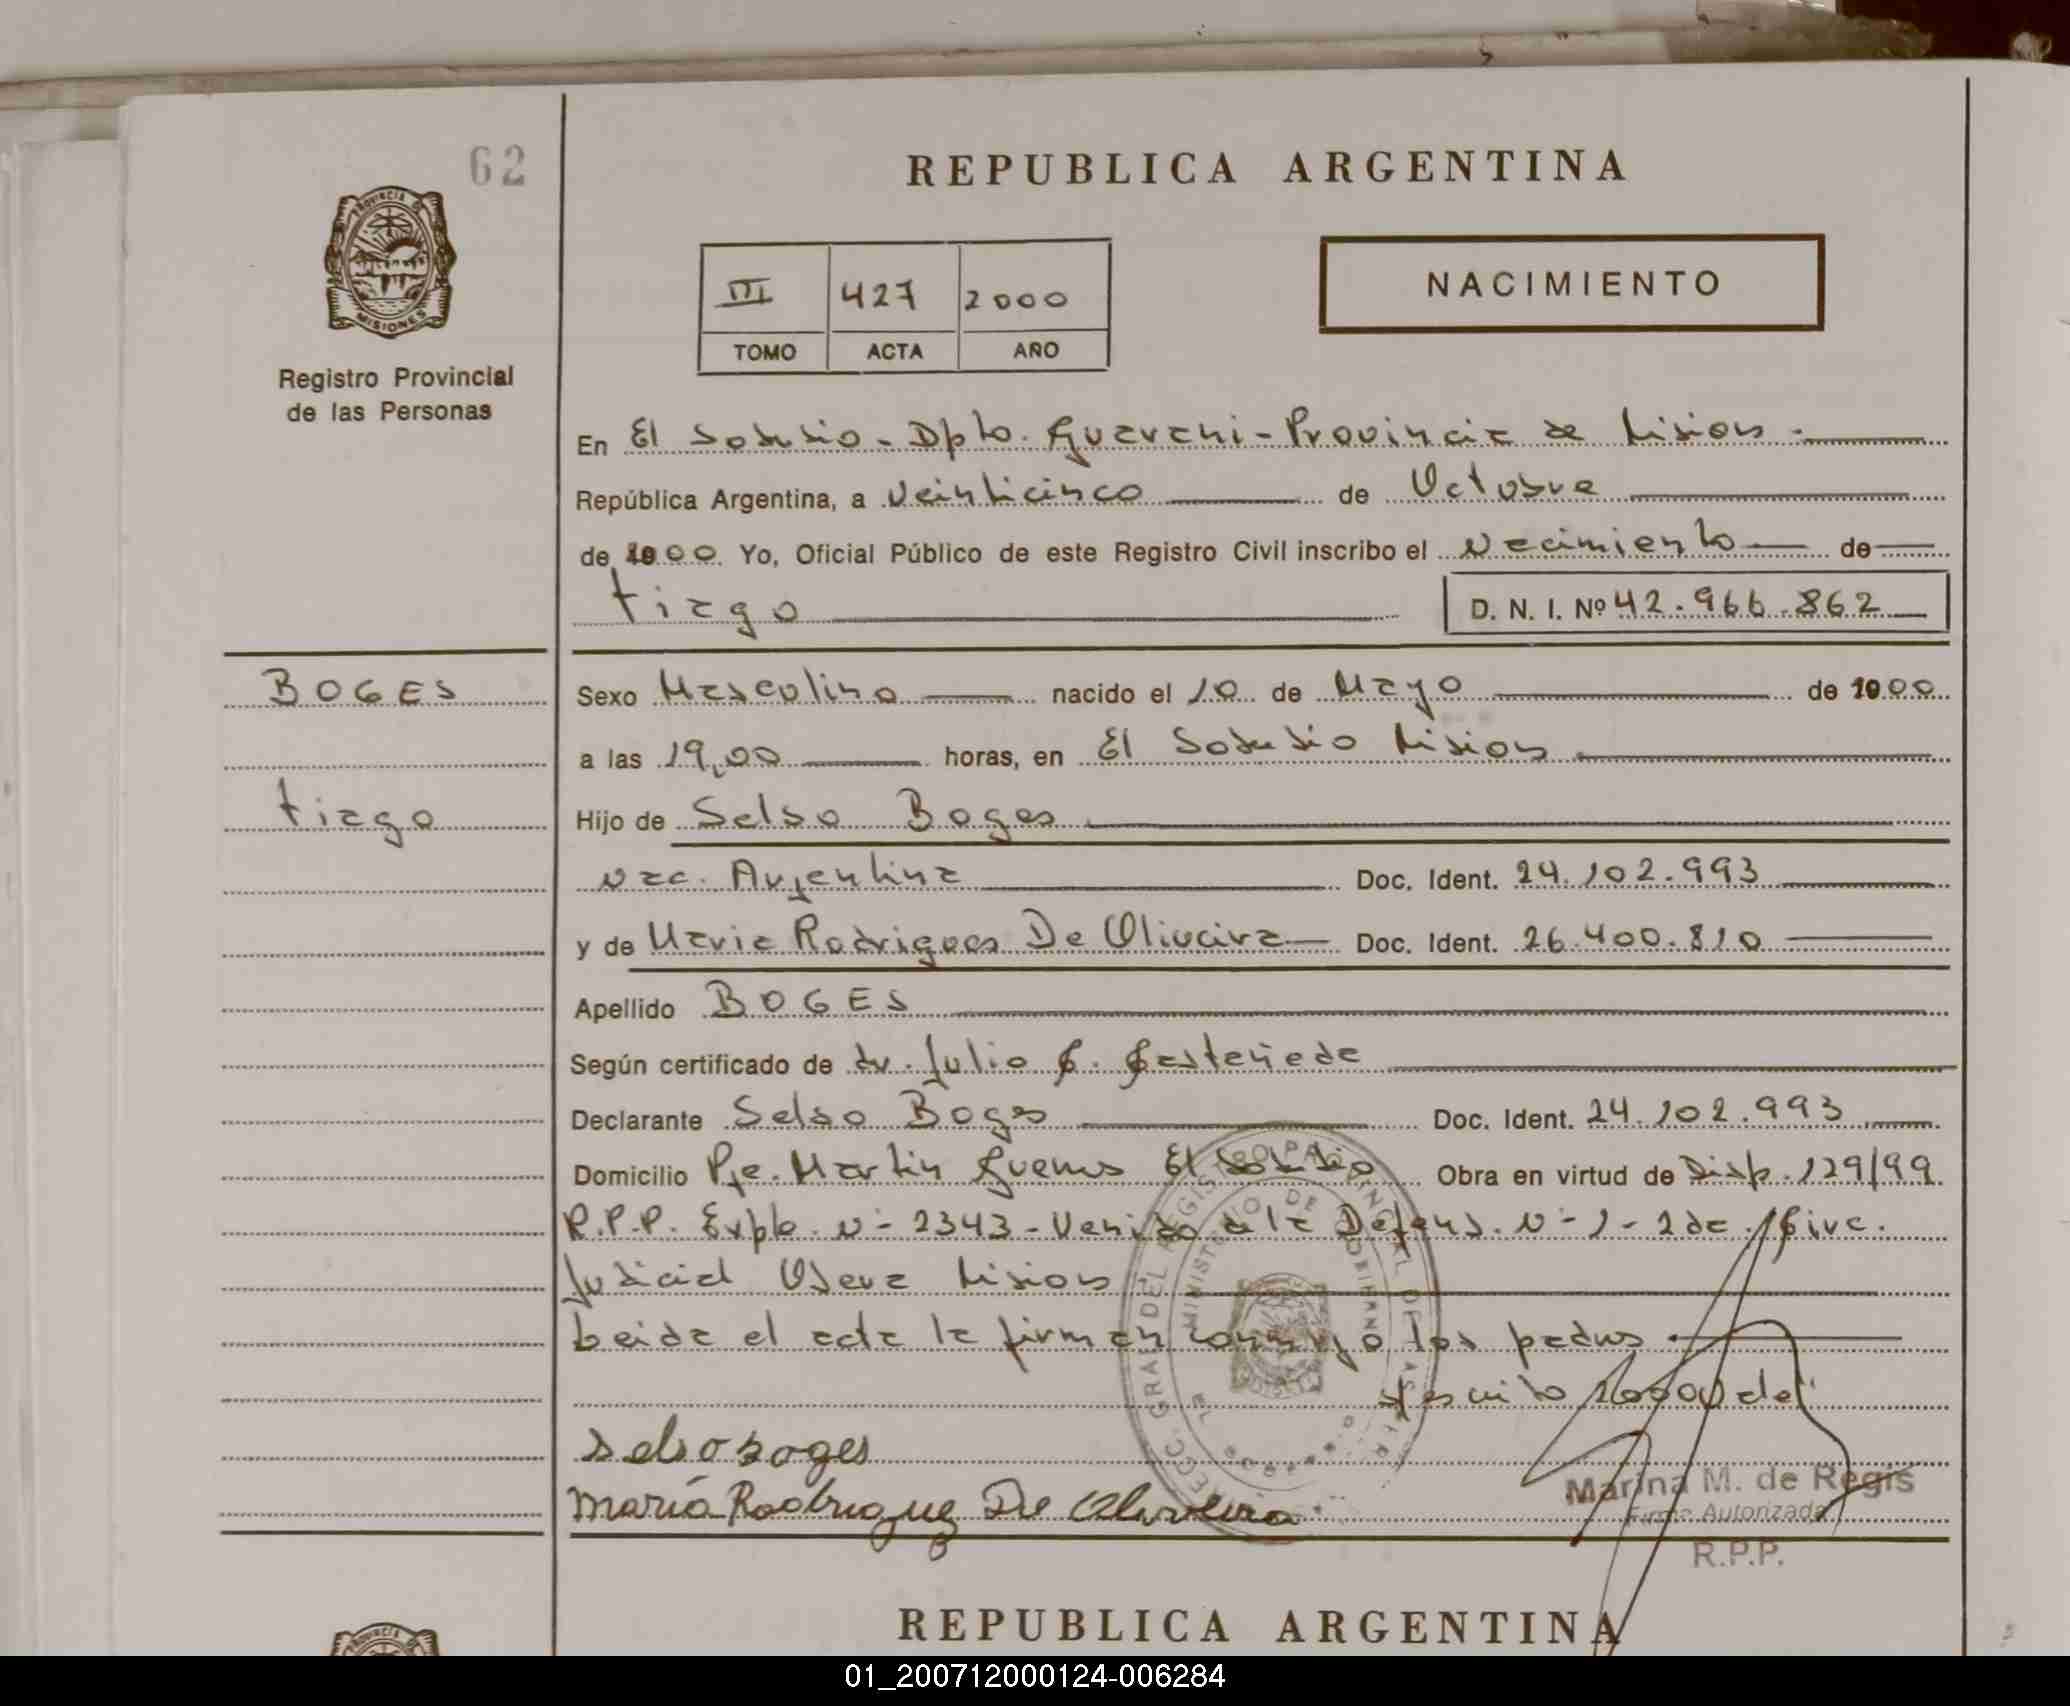 62
REPUBLICA ARGENTINA
PROVINCIA DE
MISIONES
Registro Provincial
de las Personas
III 427 2000
TOMO ACTA AÑO
NACIMIENTO
En El Soberbio - Dpto. Guarani - Provincia de Misiones
República Argentina, a Veinticinco de Octubre
de 2000 Yo, Oficial Público de este Registro Civil inscribo el Nacimiento de
Tiago D. N. I. Nº 42.966.862
BOGES
Tiago
Sexo Masculino nacido el 10 de Mayo de 2000
a las 19,00 horas, en El Soberbio Misiones
Hijo de Selso Boges
Nac. Argentina Doc. Ident. 24.102.993
y de Maria Rodrigues De Oliveira Doc. Ident. 26.400.810
Apellido BOGES
Según certificado de dr. Julio C. Casteñeda
Declarante Selso Boges Doc. Ident. 24.102.993
Domicilio Pje. Martin Guemes El Soberbio Obra en virtud de Disp. 129/99
R.P.P. Expte. Nº 2343 - Venido de la Defens. Nº 1 - 2da. Circ.
Judicial Obera Misiones
Leida el acta la firman conmigo los padres
escrito 2000 de
selso boges
maria Rodrigues De Oliveira
Marina M. de Regis
Firma Autorizada
R.P.P.
REPUBLICA ARGENTINA
01_200712000124-006284